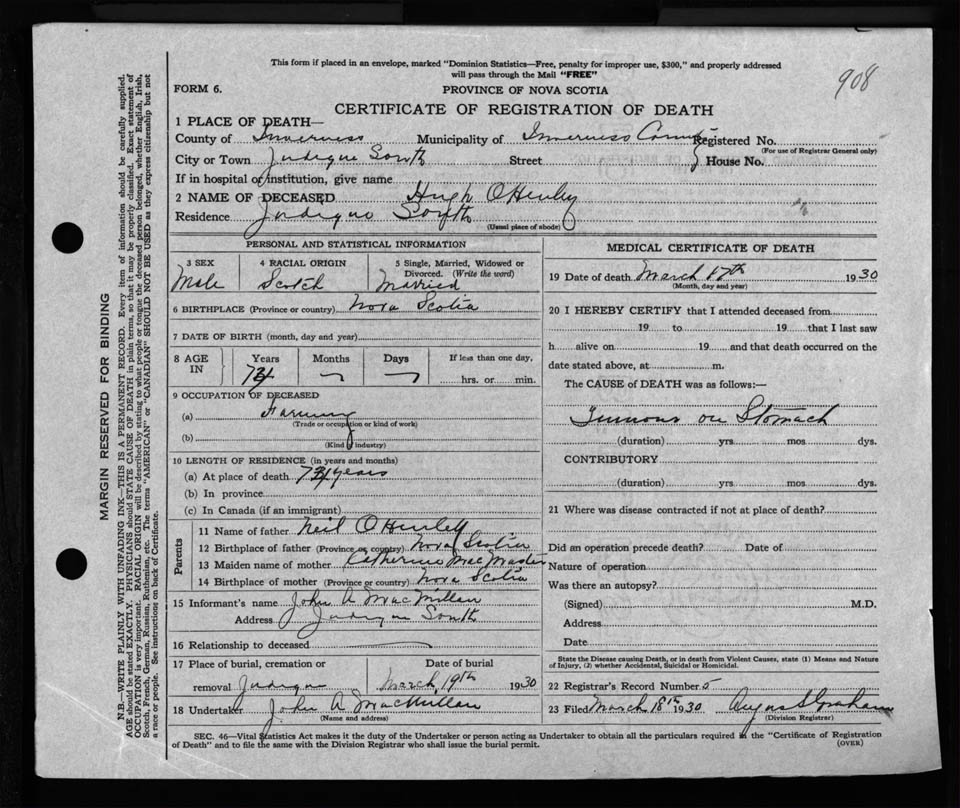 908
This form if placed in an envelope, marked "Dominion Statistics—Free, penalty for improper use, $300," and properly addressed
will pass through the Mail "FREE"
FORM 6.
PROVINCE OF NOVA SCOTIA
CERTIFICATE OF REGISTRATION OF DEATH
1 PLACE OF DEATH—
County of Inverness Municipality of Inverness County Registered No.
(For use of Registrar General only)
City or Town Judique South Street House No.
If in hospital or institution, give name
2 NAME OF DECEASED Hugh O'Henley
Residence Judique South
(Usual place of abode)
PERSONAL AND STATISTICAL INFORMATION
3 SEX 4 RACIAL ORIGIN 5 Single, Married, Widowed or
Divorced. (Write the word)
Male Scotch Married
6 BIRTHPLACE (Province or country) Nova Scotia
7 DATE OF BIRTH (month, day and year)
8 AGE IN Years Months Days If less than one day,
hrs. or min.
9 OCCUPATION OF DECEASED
(a) Farming
(Trade or occupation or kind of work)
(b)
(Kind of industry)
10 LENGTH OF RESIDENCE (in years and months)
(a) At place of death years
(b) In province
(c) In Canada (if an immigrant)
Parents
11 Name of father Neil O'Henley
12 Birthplace of father (Province or country) Nova Scotia
13 Maiden name of mother Catherine MacMaster
14 Birthplace of mother (Province or country) Nova Scotia
15 Informant's name John A MacMillan
Address Judique South
16 Relationship to deceased
17 Place of burial, cremation or Date of burial
removal Judique March 19th 1930
18 Undertaker John A MacMillan
(Name and address)
MEDICAL CERTIFICATE OF DEATH
19 Date of death March 17th 1930
(Month, day and year)
20 I HEREBY CERTIFY that I attended deceased from
19 to 19 that I last saw
h alive on 19 and that death occurred on the
date stated above, at m.
The CAUSE of DEATH was as follows:—
on Stomach
(duration) yrs. mos. dys.
CONTRIBUTORY
(duration) yrs. mos. dys.
21 Where was disease contracted if not at place of death?
Did an operation precede death? Date of
Nature of operation
Was there an autopsy?
(Signed) M.D.
Address
Date
State the Disease causing Death, or in death from Violent Causes, state (1) Means and Nature
of Injury, (2) whether Accidental, Suicidal or Homicidal.
22 Registrar's Record Number 5
23 Filed March 18th 1930 Angus S Graham
(Division Registrar)
SEC. 46—Vital Statistics Act makes it the duty of the Undertaker or person acting as Undertaker to obtain all the particulars required in the "Certificate of Registration
of Death" and to file the same with the Division Registrar who shall issue the burial permit.
(OVER)
MARGIN RESERVED FOR BINDING
N.B.—WRITE PLAINLY WITH UNFADING INK—THIS IS A PERMANENT RECORD. Every item of information should be carefully supplied.
AGE should be stated EXACTLY. PHYSICIANS should STATE CAUSE OF DEATH in plain terms, so that it may be properly classified. Exact statement of
OCCUPATION is very important. RACIAL ORIGIN will be described by stating to what people or tongue the deceased person belonged, whether English, Irish,
Scotch, French, German, Russian, Ruthenian, etc. The terms "AMERICAN" or "CANADIAN" SHOULD NOT BE USED as they express citizenship but not
a race or people. See instructions on back of Certificate.